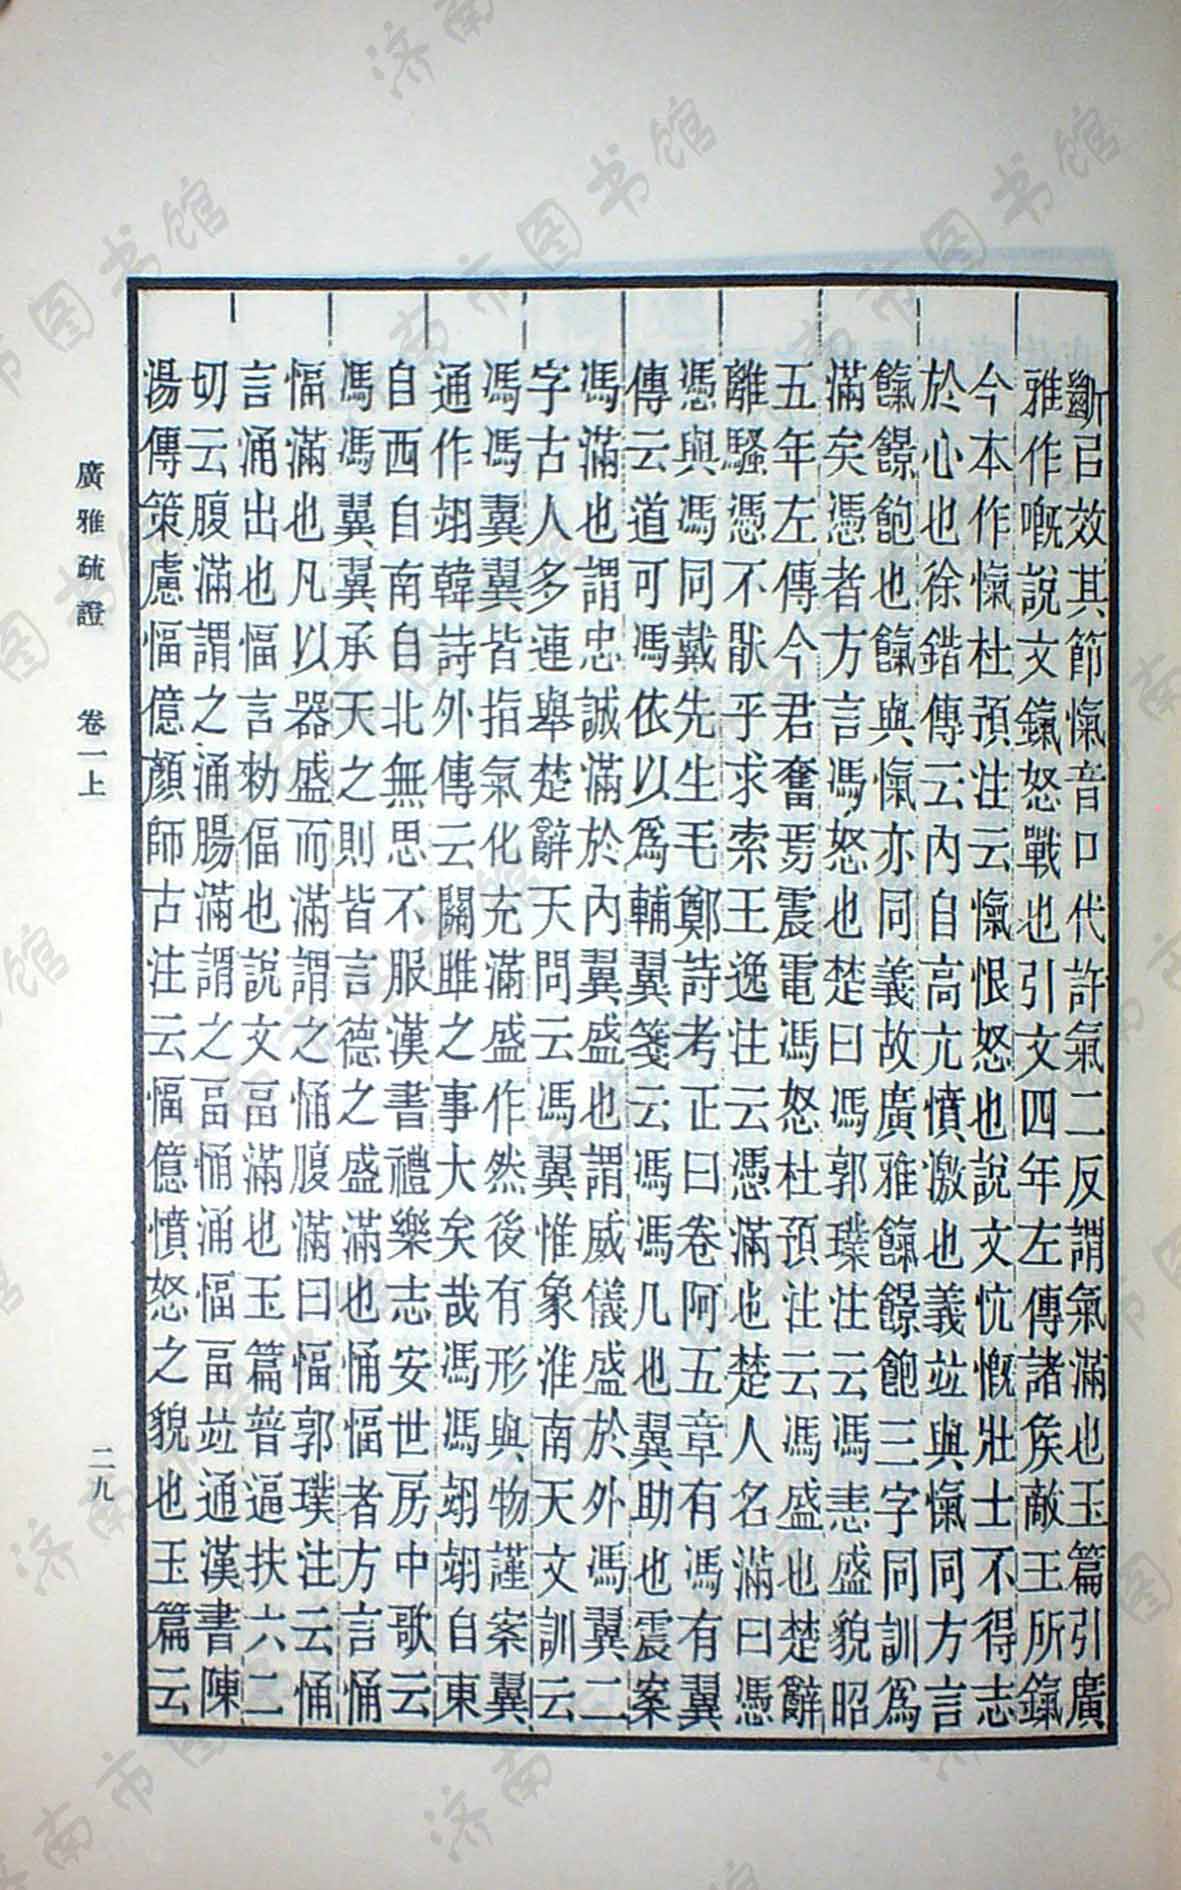 斷㠯效其節愾音口代許氣二反謂氣滿也玉篇引廣
雅作嘅說文鎎怒戰也引文四年左傳諸矦敵王所鎎
今本作愾杜預注云愾恨怒也說文忼慨壯士不得志
於心也徐鍇傳云內自高亢憤激也義竝與愾同方言
餼䭒飽也餼與愾亦同義故廣雅餼䭒飽三字同訓爲
滿矣憑者方言馮怒也楚曰馮郭璞注云馮恚盛貌昭
五年左傳今君奮焉震電馮怒杜預注云馮盛也楚辭
離騷憑不猒乎求索王逸注云憑滿也楚人名滿曰憑
憑與馮同戴先生毛鄭詩考正曰卷阿五章有馮有翼
傳云道可馮依以爲輔翼箋云馮馮几也翼助也震案
馮滿也謂忠誠滿於內翼盛也謂威儀盛於外馮翼二
字古人多連舉楚辭天問云馮翼惟象淮南天文訓云
馮馮翼翼皆指氣化充滿盛作然後有形與物謹案翼
通作翊韓詩外傳云關雎之事大矣哉馮馮翊翊自東
自西自南自北無思不服漢書禮樂志安世房中歌云
馮馮翼翼承天之則皆言德之盛滿也悀愊者方言悀
愊滿也凡以器盛而滿謂之悀腹滿曰愊郭璞注云悀
言涌出也愊言勑偪也說文畐滿也玉篇普逼扶六二
切云腹滿謂之涌腸滿謂之畐悀涌愊畐竝通漢書陳
湯傳策慮愊億顏師古注云愊億憤怒之貌也玉篇云
廣雅疏證 卷一上 二九
济南市图书馆